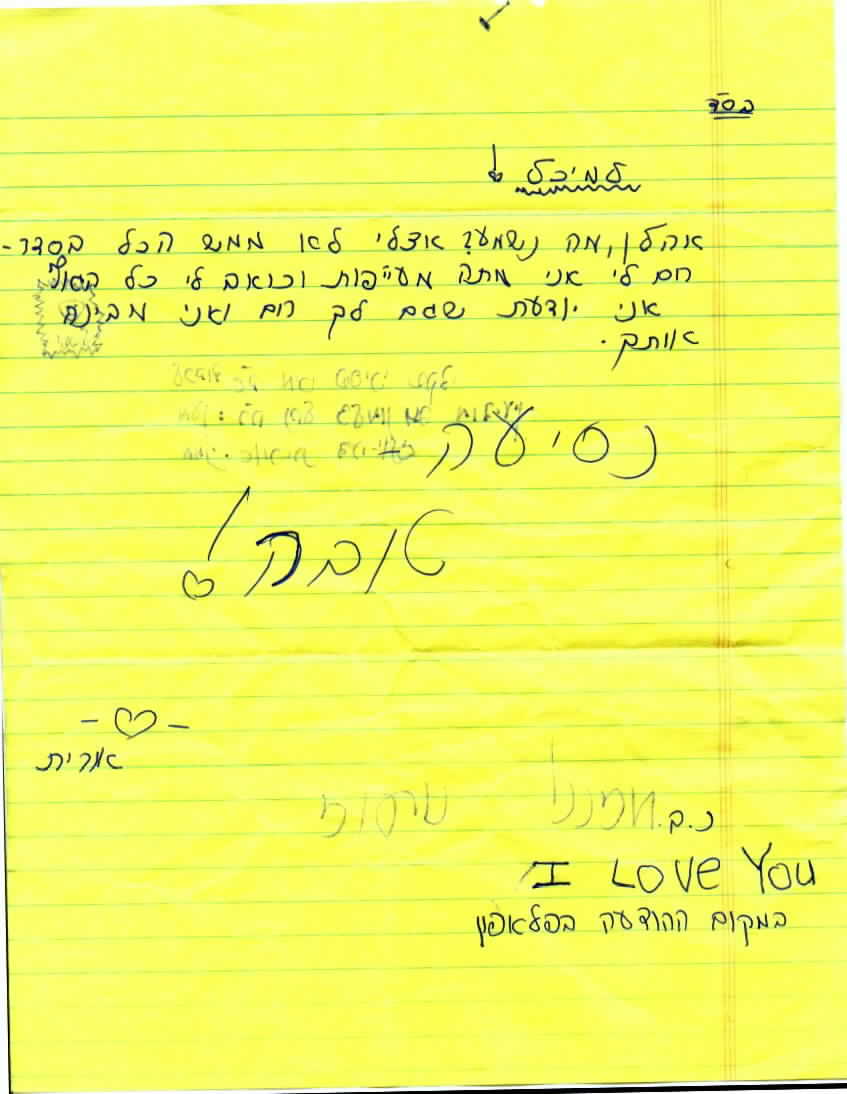 בס"ד
למיכל
אהלן, מה נשמע? אצלי לא ממש הכל בסדר-
חם לי אני מתה מעייפות וכואב לי כל הגוף
אני יודעת שגם לך חם ואני מבינה
אותך.
נסיעה
טובה!
- ♡ -
אורית
נ.ב.
I LOVE YOU
במקום ההודעה בפלאפון